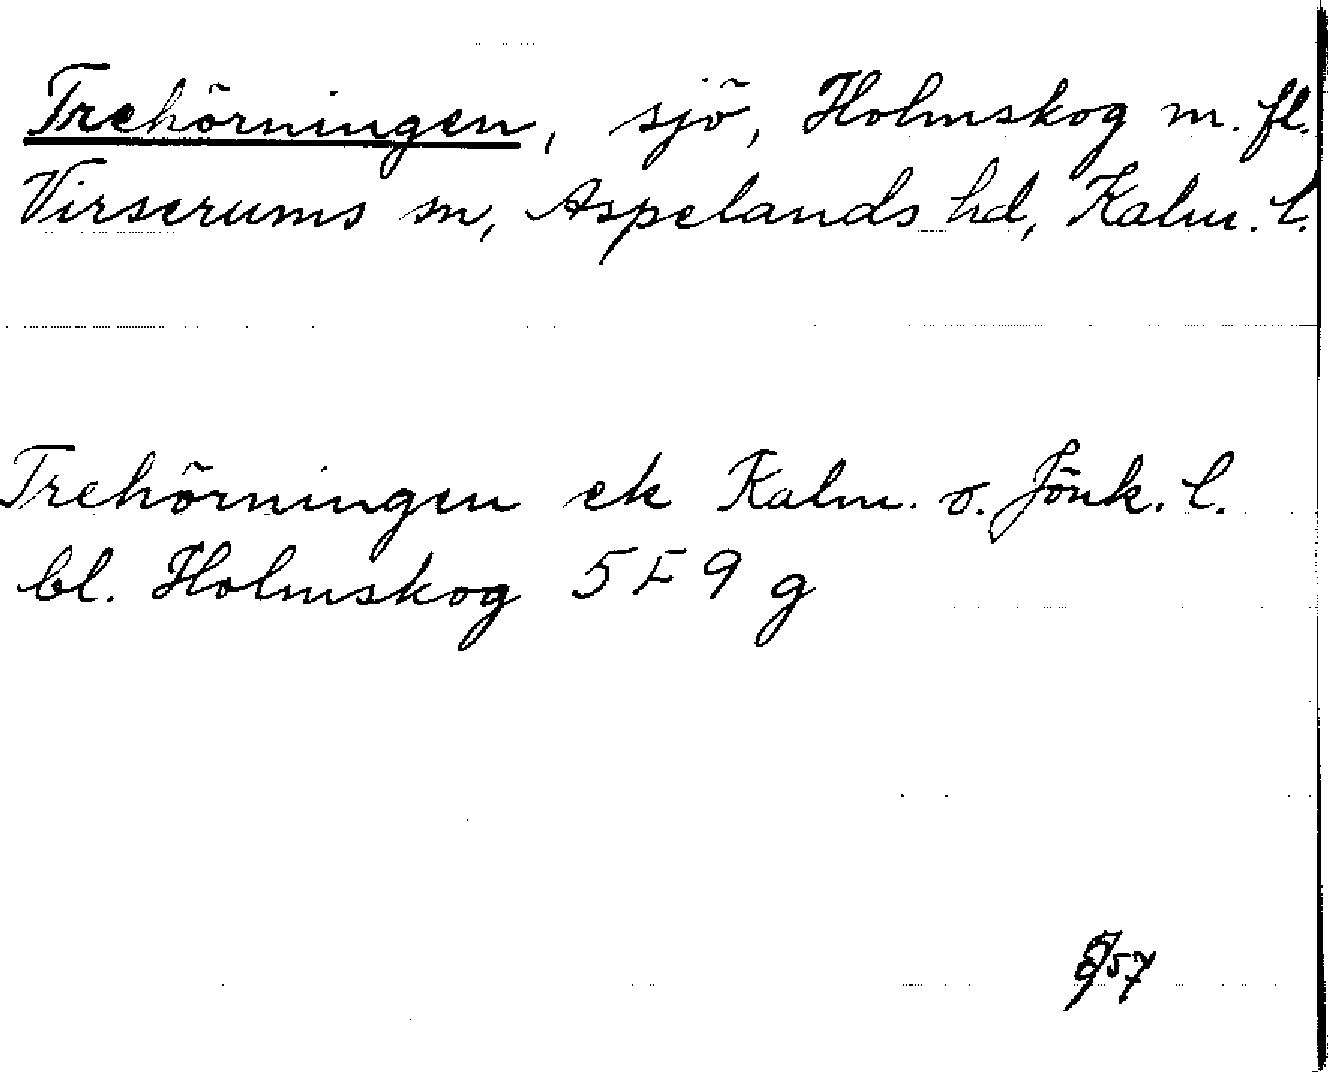 Trehörningen, sjö, Holmskog m. fl.
Virserums sn, Aspelands hd, Kalm. l.
Trehörningen ek Kalm. o. Jönk. l.
bl. Holmskog 5 F 9 g